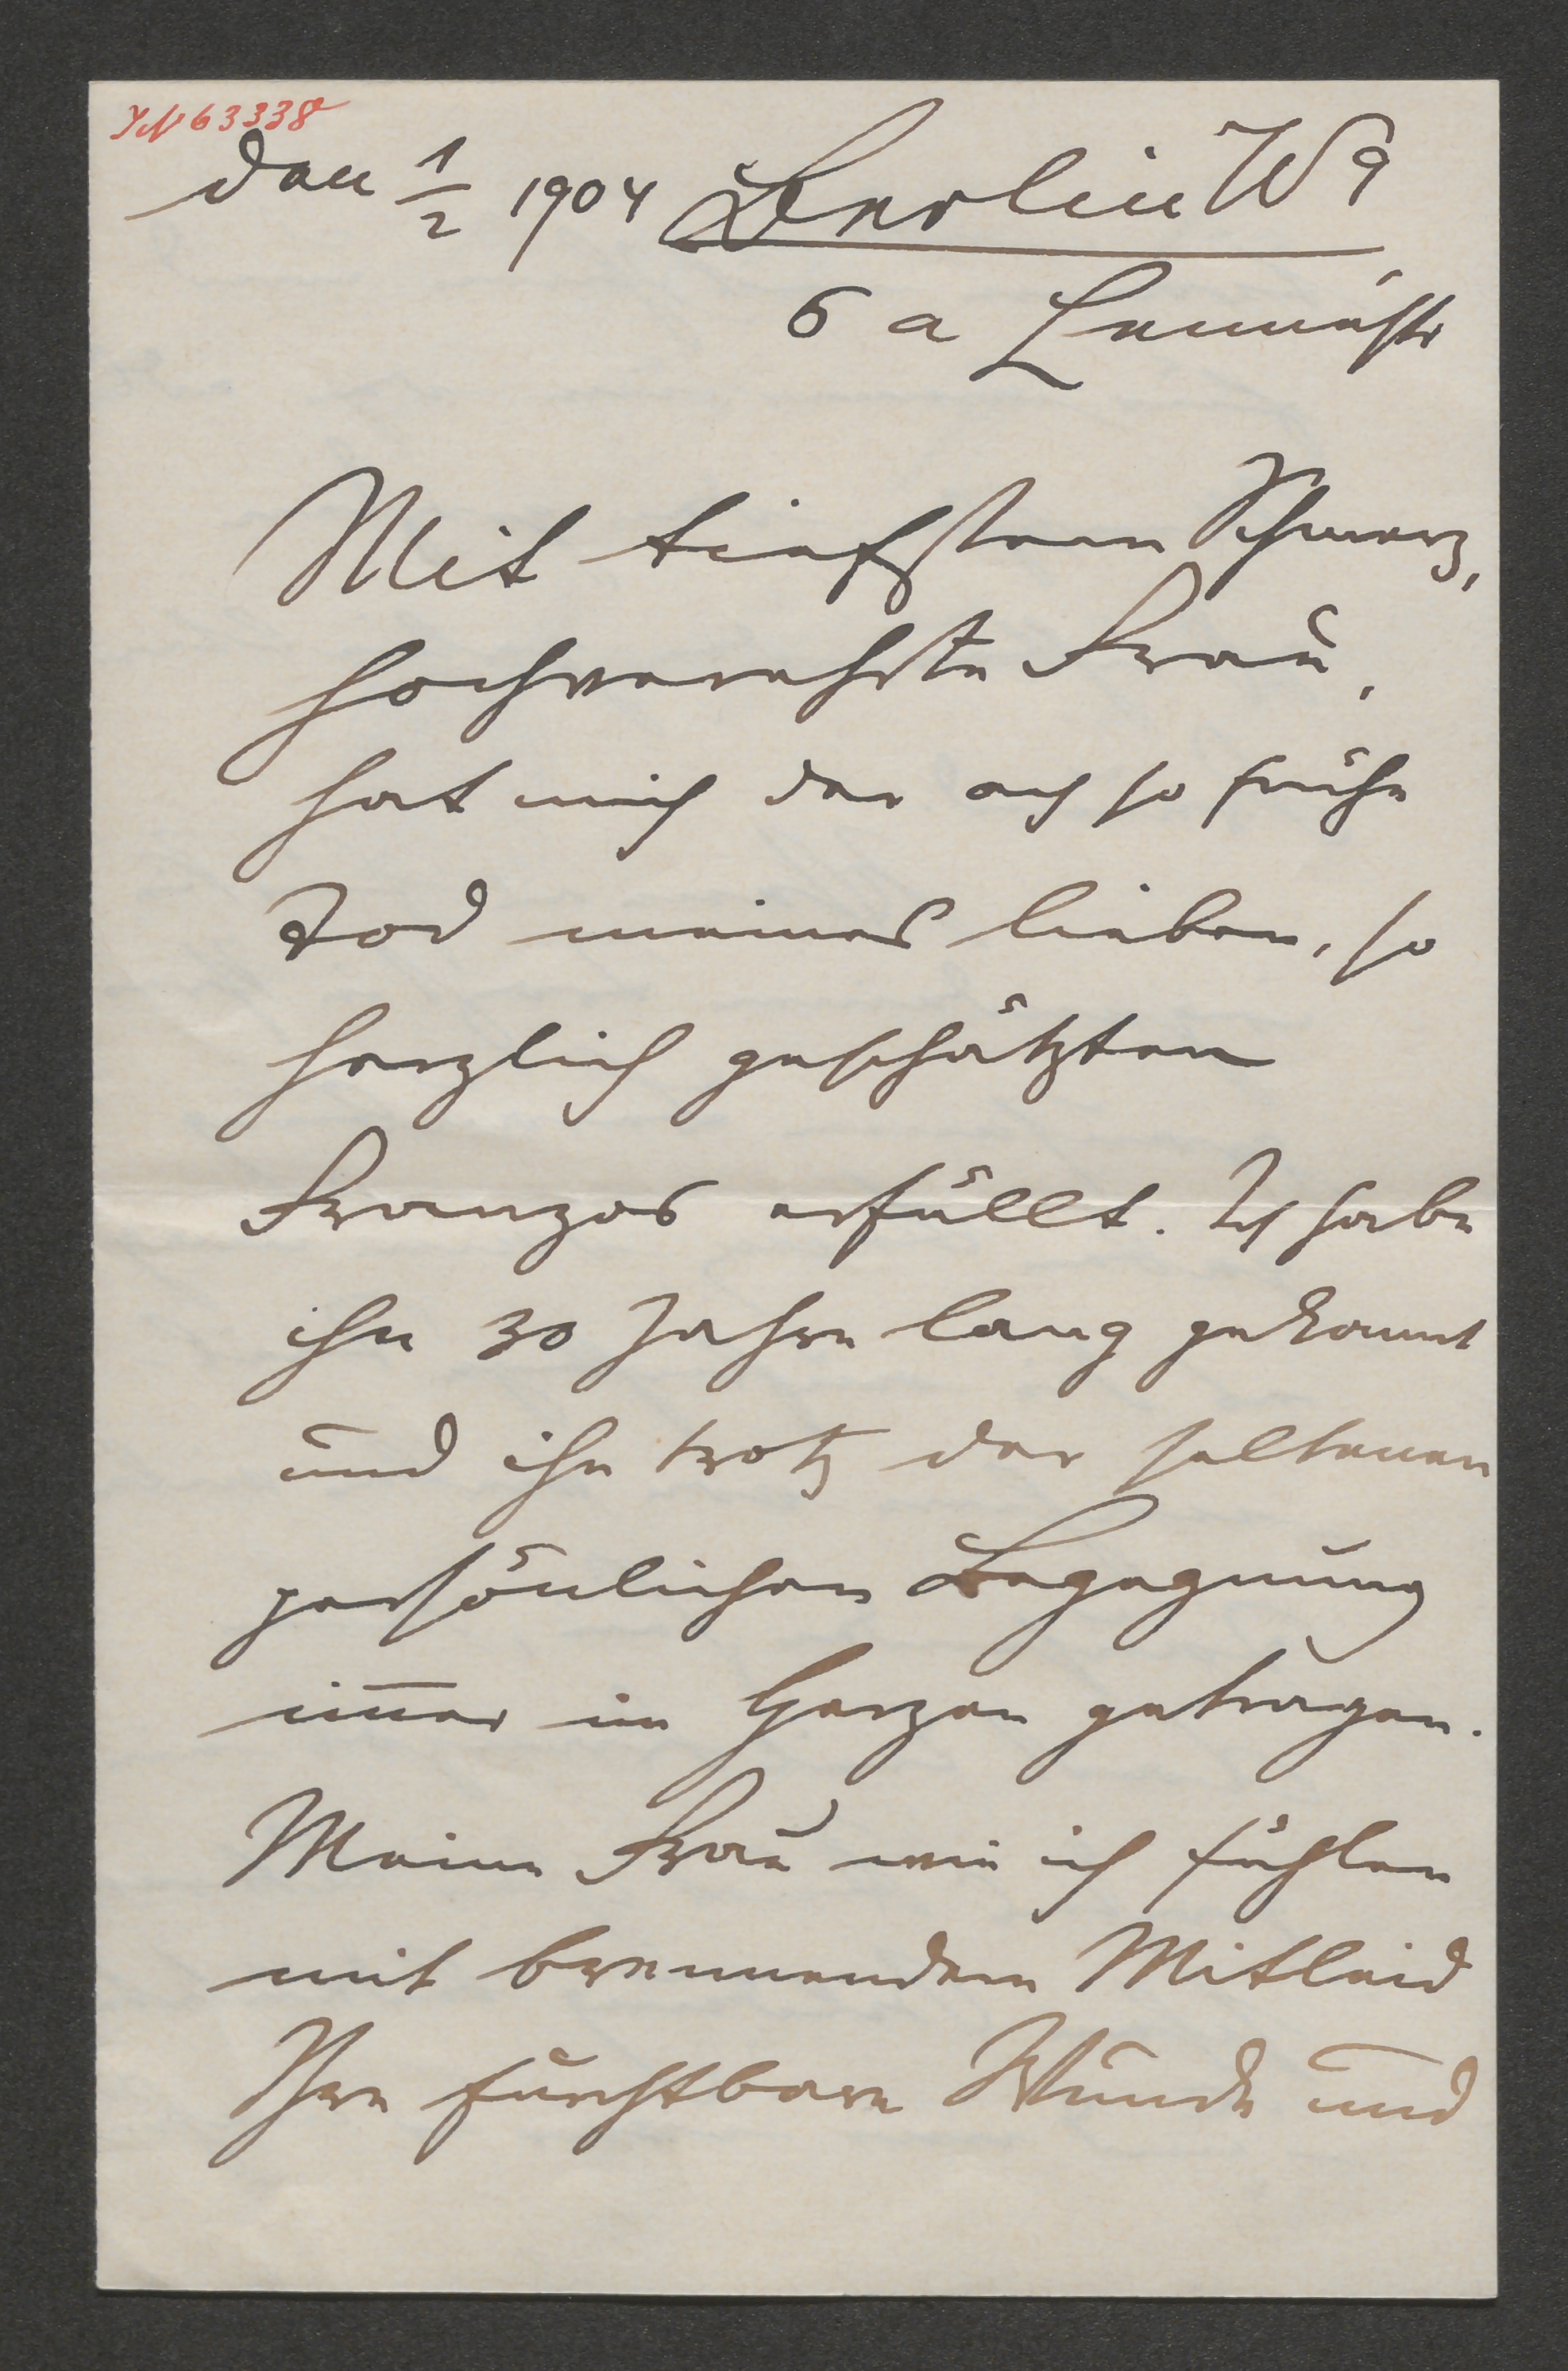 JN 63338
den 1/2 1904 Berlin W 9
6 a Lennéstr
Mit tiefstem Schmerz,
hochverehrte Frau,
hat mich der ach so frühe
Tod meines lieben, so
herzlich geschätzten
Franzos erfüllt. Ich habe
ihn 30 Jahre lang gekannt
und ihn trotz der seltenen
persönlichen Begegnung
im̅er im Herzen getragen.
Meine Frau wie ich fühlen
mit brennendem Mitleid
Ihre furchtbare Wunde und